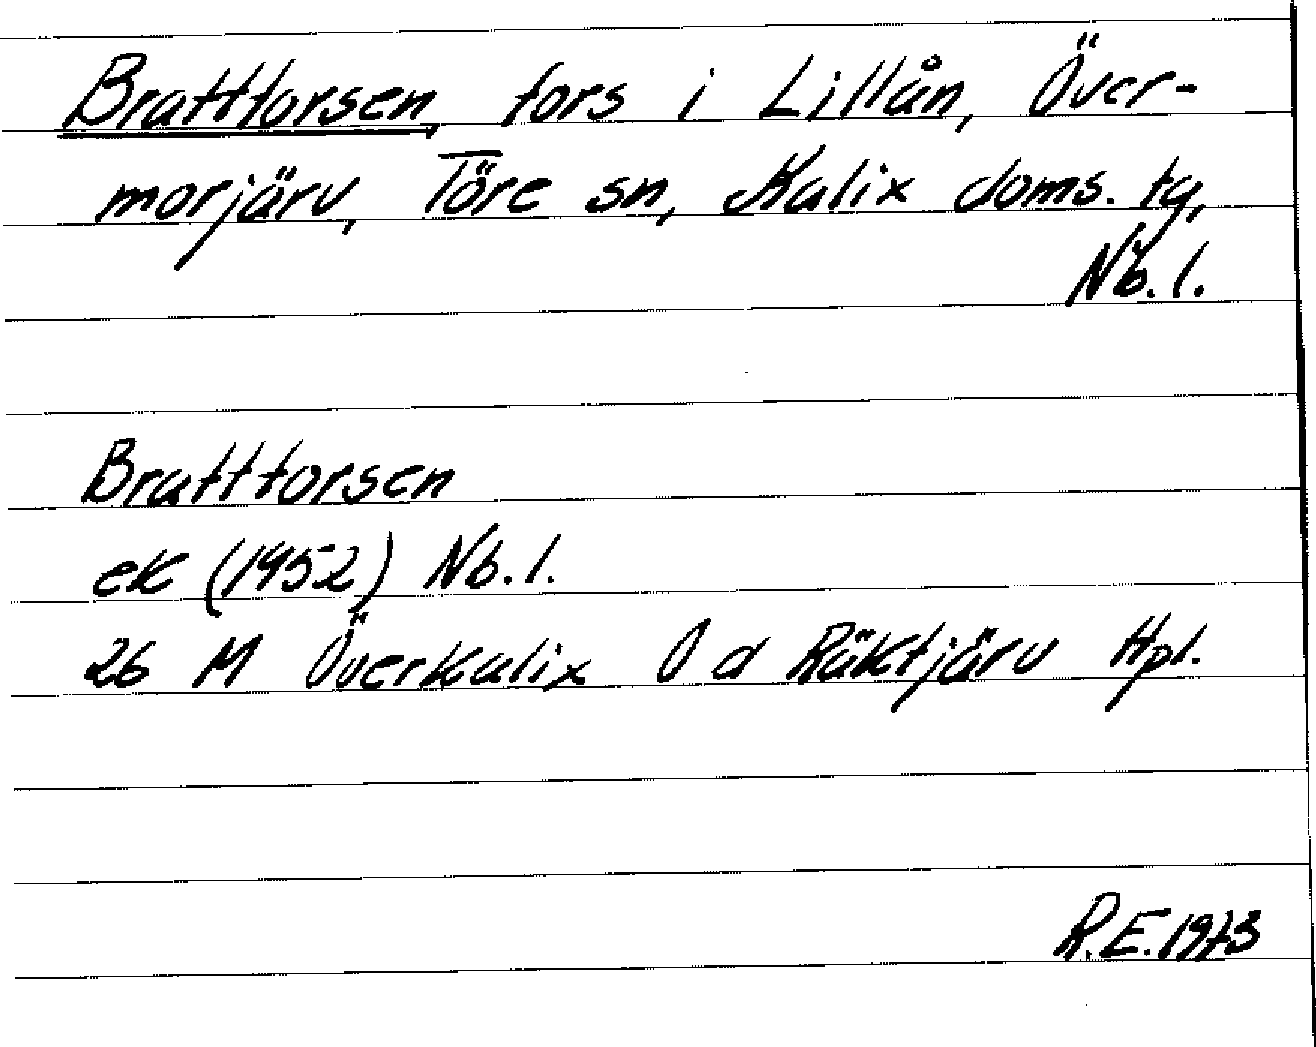 Brattforsen, fors i Lillån, Över-
morjärv, Töre sn, Kalix doms. tg,
Nb. l.
Brattforsen
ek (1952) Nb. l.
26 M Överkalix O d Räktjärv Hpl.
R.E. 1973